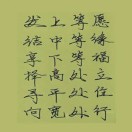 发上等愿
结中等缘
享下等福
择高处立
寻平处住
向宽处行